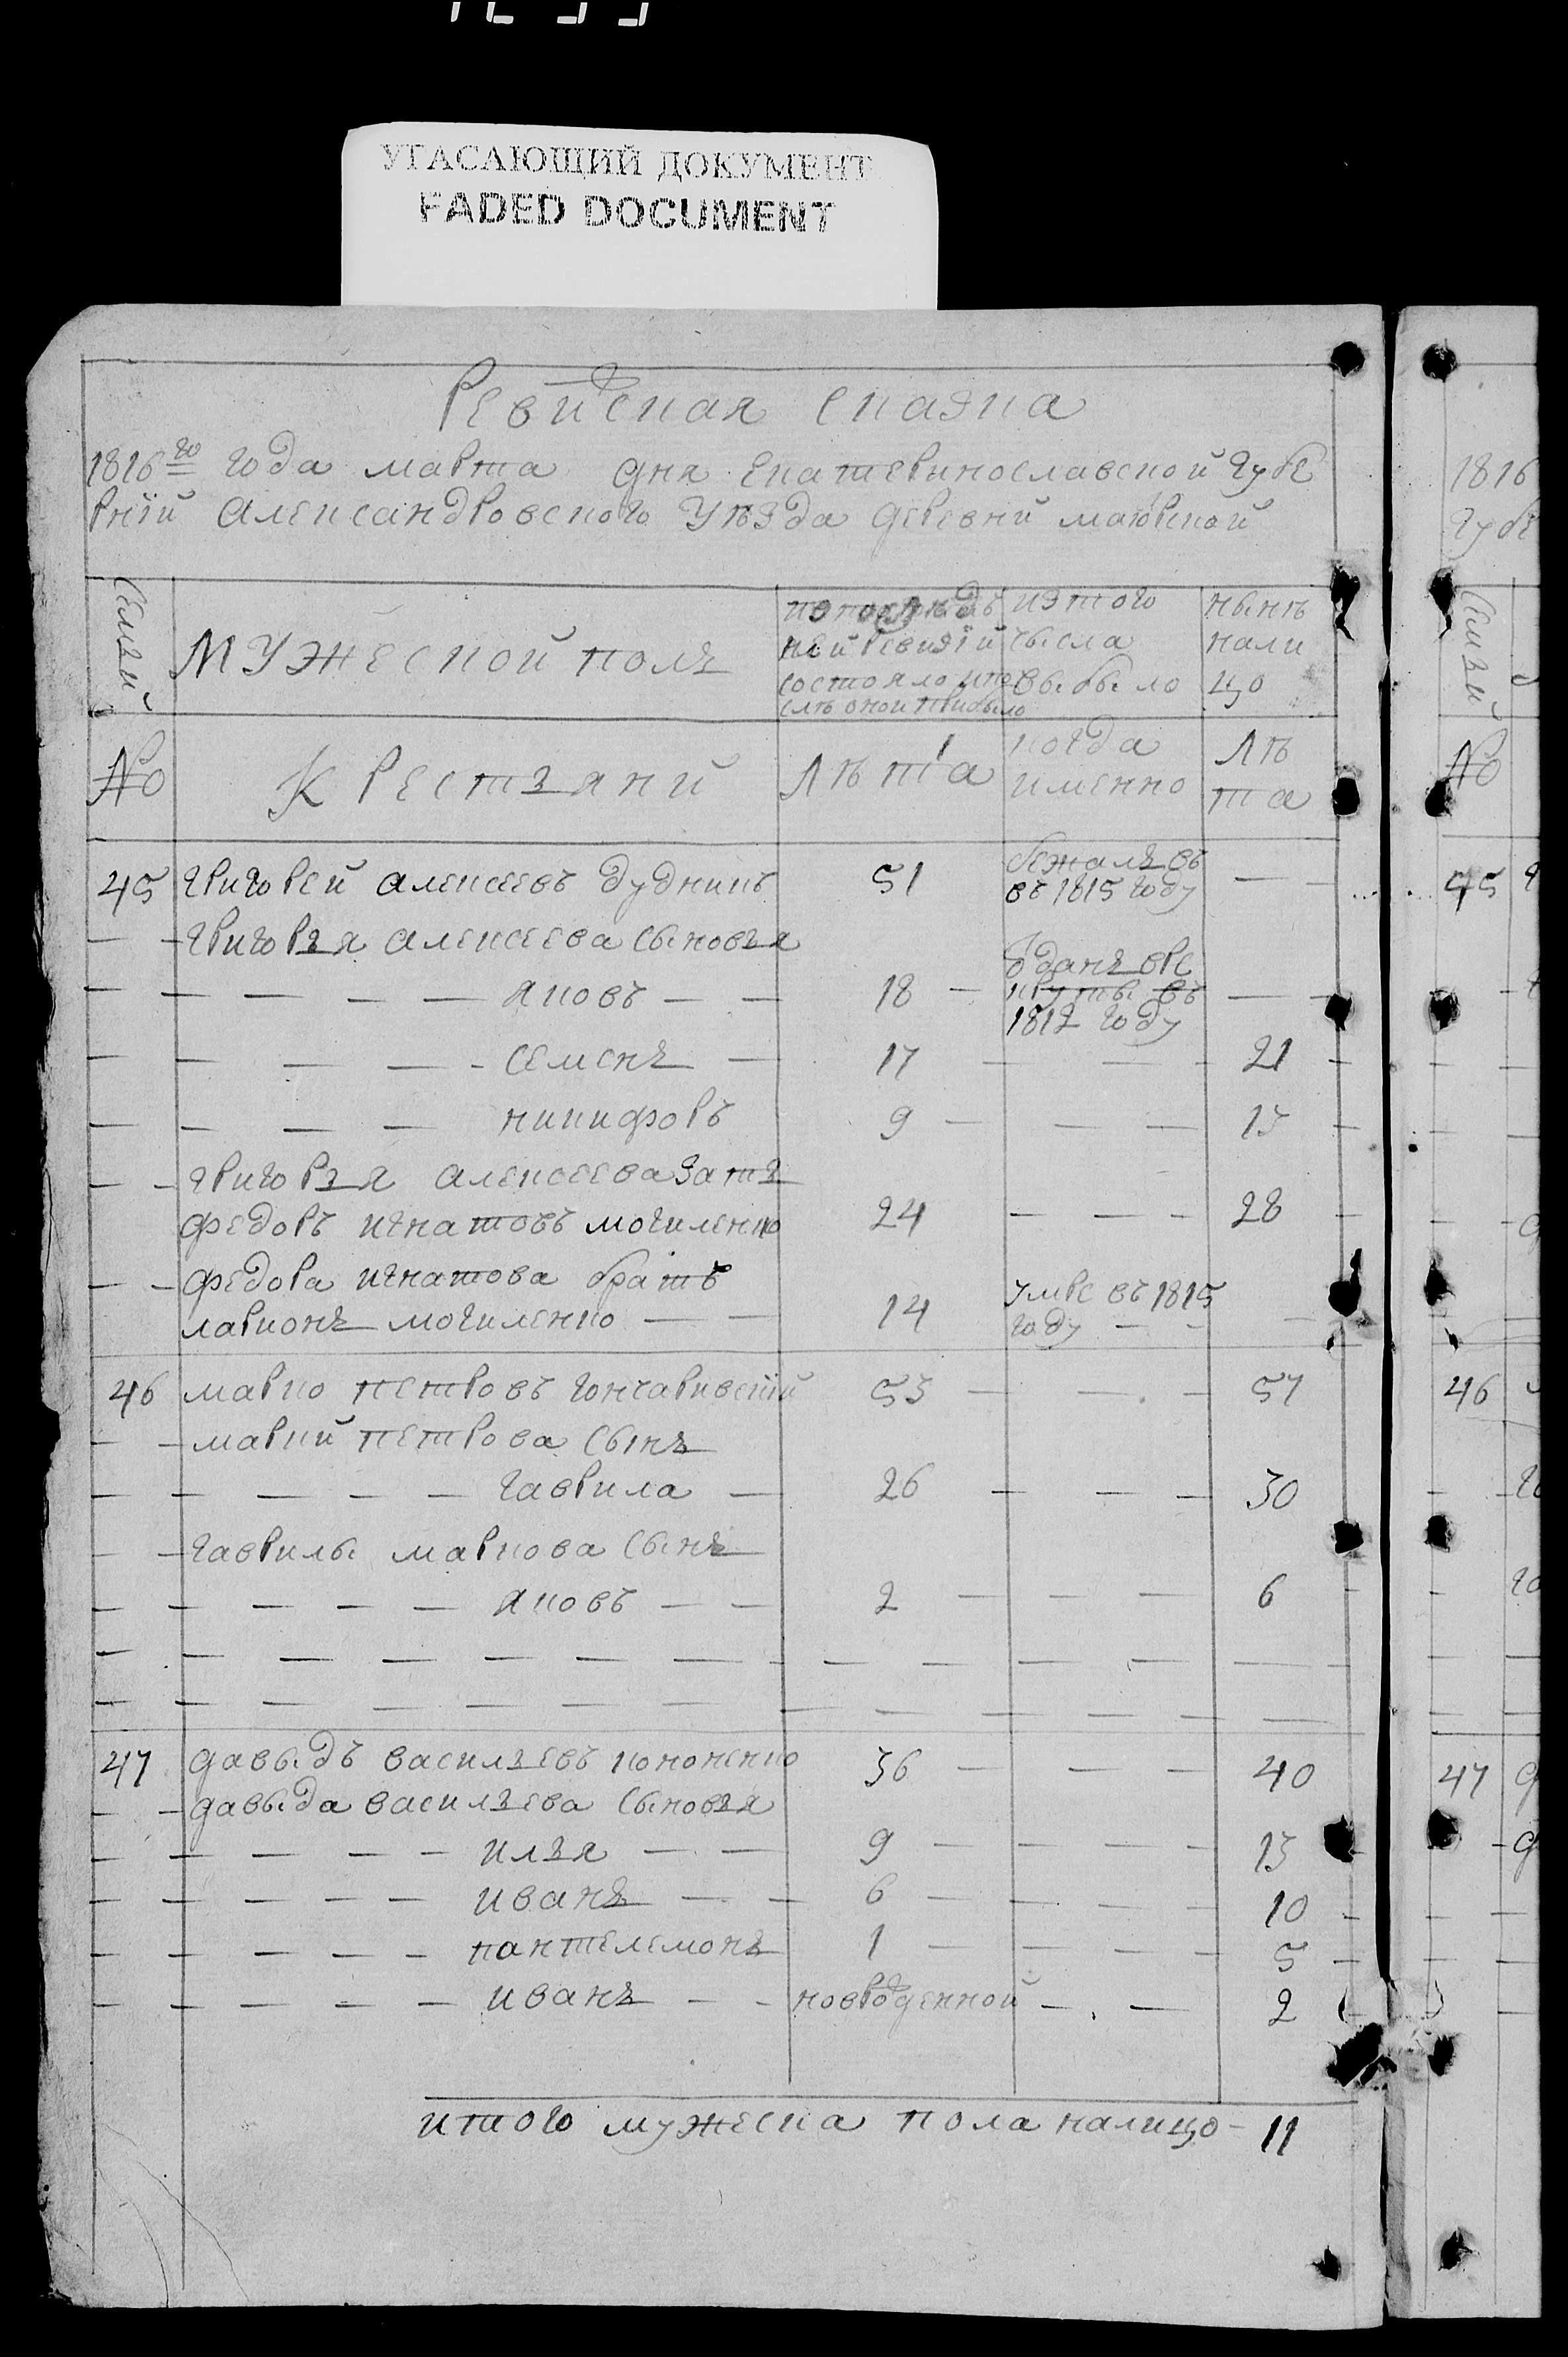 УГАСАЮЩИЙ ДОКУМЕНТ
FADED DOCUMENT
Ревижская сказка
1816го года марта дня екатеринославской губе
рнїи Александровского уѣзда деревни маіорской
Семьи
мужеской полъ
изпослѣдъ
ней ревизїи
состояло ипо
слѣ оной прибыло
изтого
числа
выбыло
нынѣ
нали
цо
№
Крестьяни
Лѣта
когда
именно
Лѣ
та
45 григорей алексеевъ дудникъ 51 бежалъ въ
въ 1815 году
григорья алексеева сыновья
яковъ 18 отданъ вре
круты въ
1812 году
семенъ 17 21
никифоръ 9 13
григорья алексеева зать
федоръ игнатовъ могиленко 24 28
федора игнатова братъ
ларионъ могиленко 14 умре въ 1815
году
46 марко петровъ гончаривскїй 53 57
марки петрова сынъ
гаврила 26 30
гаврилы маркова сынъ
яковъ 2 6
47 давыдъ васильевъ кононенко 36 40
давыда васильева сыновья
илья 9 13
иванъ 6 10
пантелемонъ 1 5
иванъ новрожденной 2
итого мужеска пола налицо 11
1816
губе
Семьи
№
45
46
47